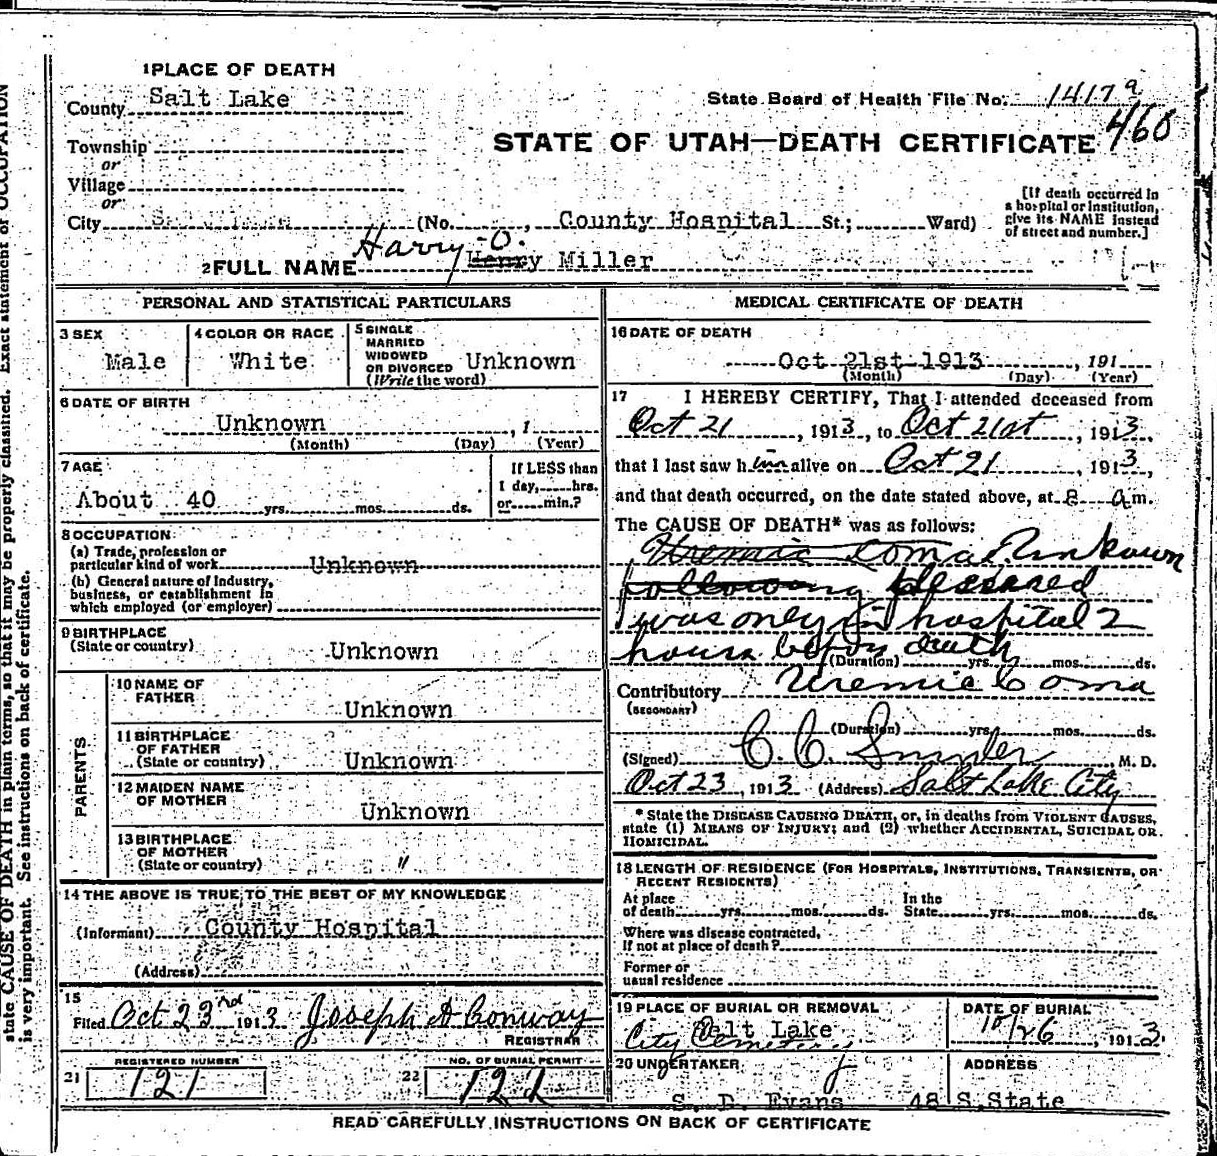 1 PLACE OF DEATH
County Salt Lake
State Board of Health File No. 1417 a
460
STATE OF UTAH—DEATH CERTIFICATE
Township
or
Village
or
City (No. , County Hospital St.; Ward)
[If death occurred in
a hospital or institution,
give its NAME instead
of street and number.]
Harry O.
2 FULL NAME Henry Miller
PERSONAL AND STATISTICAL PARTICULARS
3 SEX
Male
4 COLOR OR RACE
White
5 SINGLE
MARRIED
WIDOWED
OR DIVORCED
(Write the word)
Unknown
6 DATE OF BIRTH
Unknown , 1
(Month) (Day) (Year)
7 AGE
About 40 yrs. mos. ds.
If LESS than
1 day, hrs.
or min.?
8 OCCUPATION
(a) Trade, profession or
particular kind of work Unknown
(b) General nature of Industry,
business, or establishment in
which employed (or employer)
9 BIRTHPLACE
(State or country) Unknown
PARENTS
10 NAME OF
FATHER
Unknown
11 BIRTHPLACE
OF FATHER
(State or country) Unknown
12 MAIDEN NAME
OF MOTHER
Unknown
13 BIRTHPLACE
OF MOTHER
(State or country) "
14 THE ABOVE IS TRUE TO THE BEST OF MY KNOWLEDGE
(Informant) County Hospital
(Address) "
15
Filed Oct 23rd 1913 Joseph A Conway
REGISTRAR
REGISTERED NUMBER
21 121
NO. OF BURIAL PERMIT
22 121
MEDICAL CERTIFICATE OF DEATH
16 DATE OF DEATH
Oct 21st 1913 , 191
(Month) (Day) (Year)
17 I HEREBY CERTIFY, That I attended deceased from
Oct 21 , 1913, to Oct 21st , 1913,
that I last saw him alive on Oct 21 , 1913,
and that death occurred, on the date stated above, at 8 a m.
The CAUSE OF DEATH* was as follows:
Uremic Coma Unknown
following deceased
was only in hospital 2
hours before death
(Duration) yrs. mos. ds.
Contributory Uremic Coma
(SECONDARY)
(Duration) yrs. mos. ds.
(Signed) C. C. Snyder , M. D.
Oct 23, 1913 (Address) Salt Lake City
* State the DISEASE CAUSING DEATH, or, in deaths from VIOLENT CAUSES,
state (1) MEANS OF INJURY; and (2) whether ACCIDENTAL, SUICIDAL OR
HOMICIDAL.
18 LENGTH OF RESIDENCE (FOR HOSPITALS, INSTITUTIONS, TRANSIENTS, OR
RECENT RESIDENTS)
At place
of death yrs. mos. ds.
In the
State yrs. mos. ds.
Where was disease contracted,
If not at place of death?
Former or
usual residence
19 PLACE OF BURIAL OR REMOVAL
Salt Lake
City Cemetery
DATE OF BURIAL
10/26 , 1913
20 UNDERTAKER
S. D. Evans
ADDRESS
48 S. State
READ CAREFULLY INSTRUCTIONS ON BACK OF CERTIFICATE
state CAUSE OF DEATH in plain terms, so that it may be properly classified. Exact statement of OCCUPATION
is very important. See instructions on back of certificate.